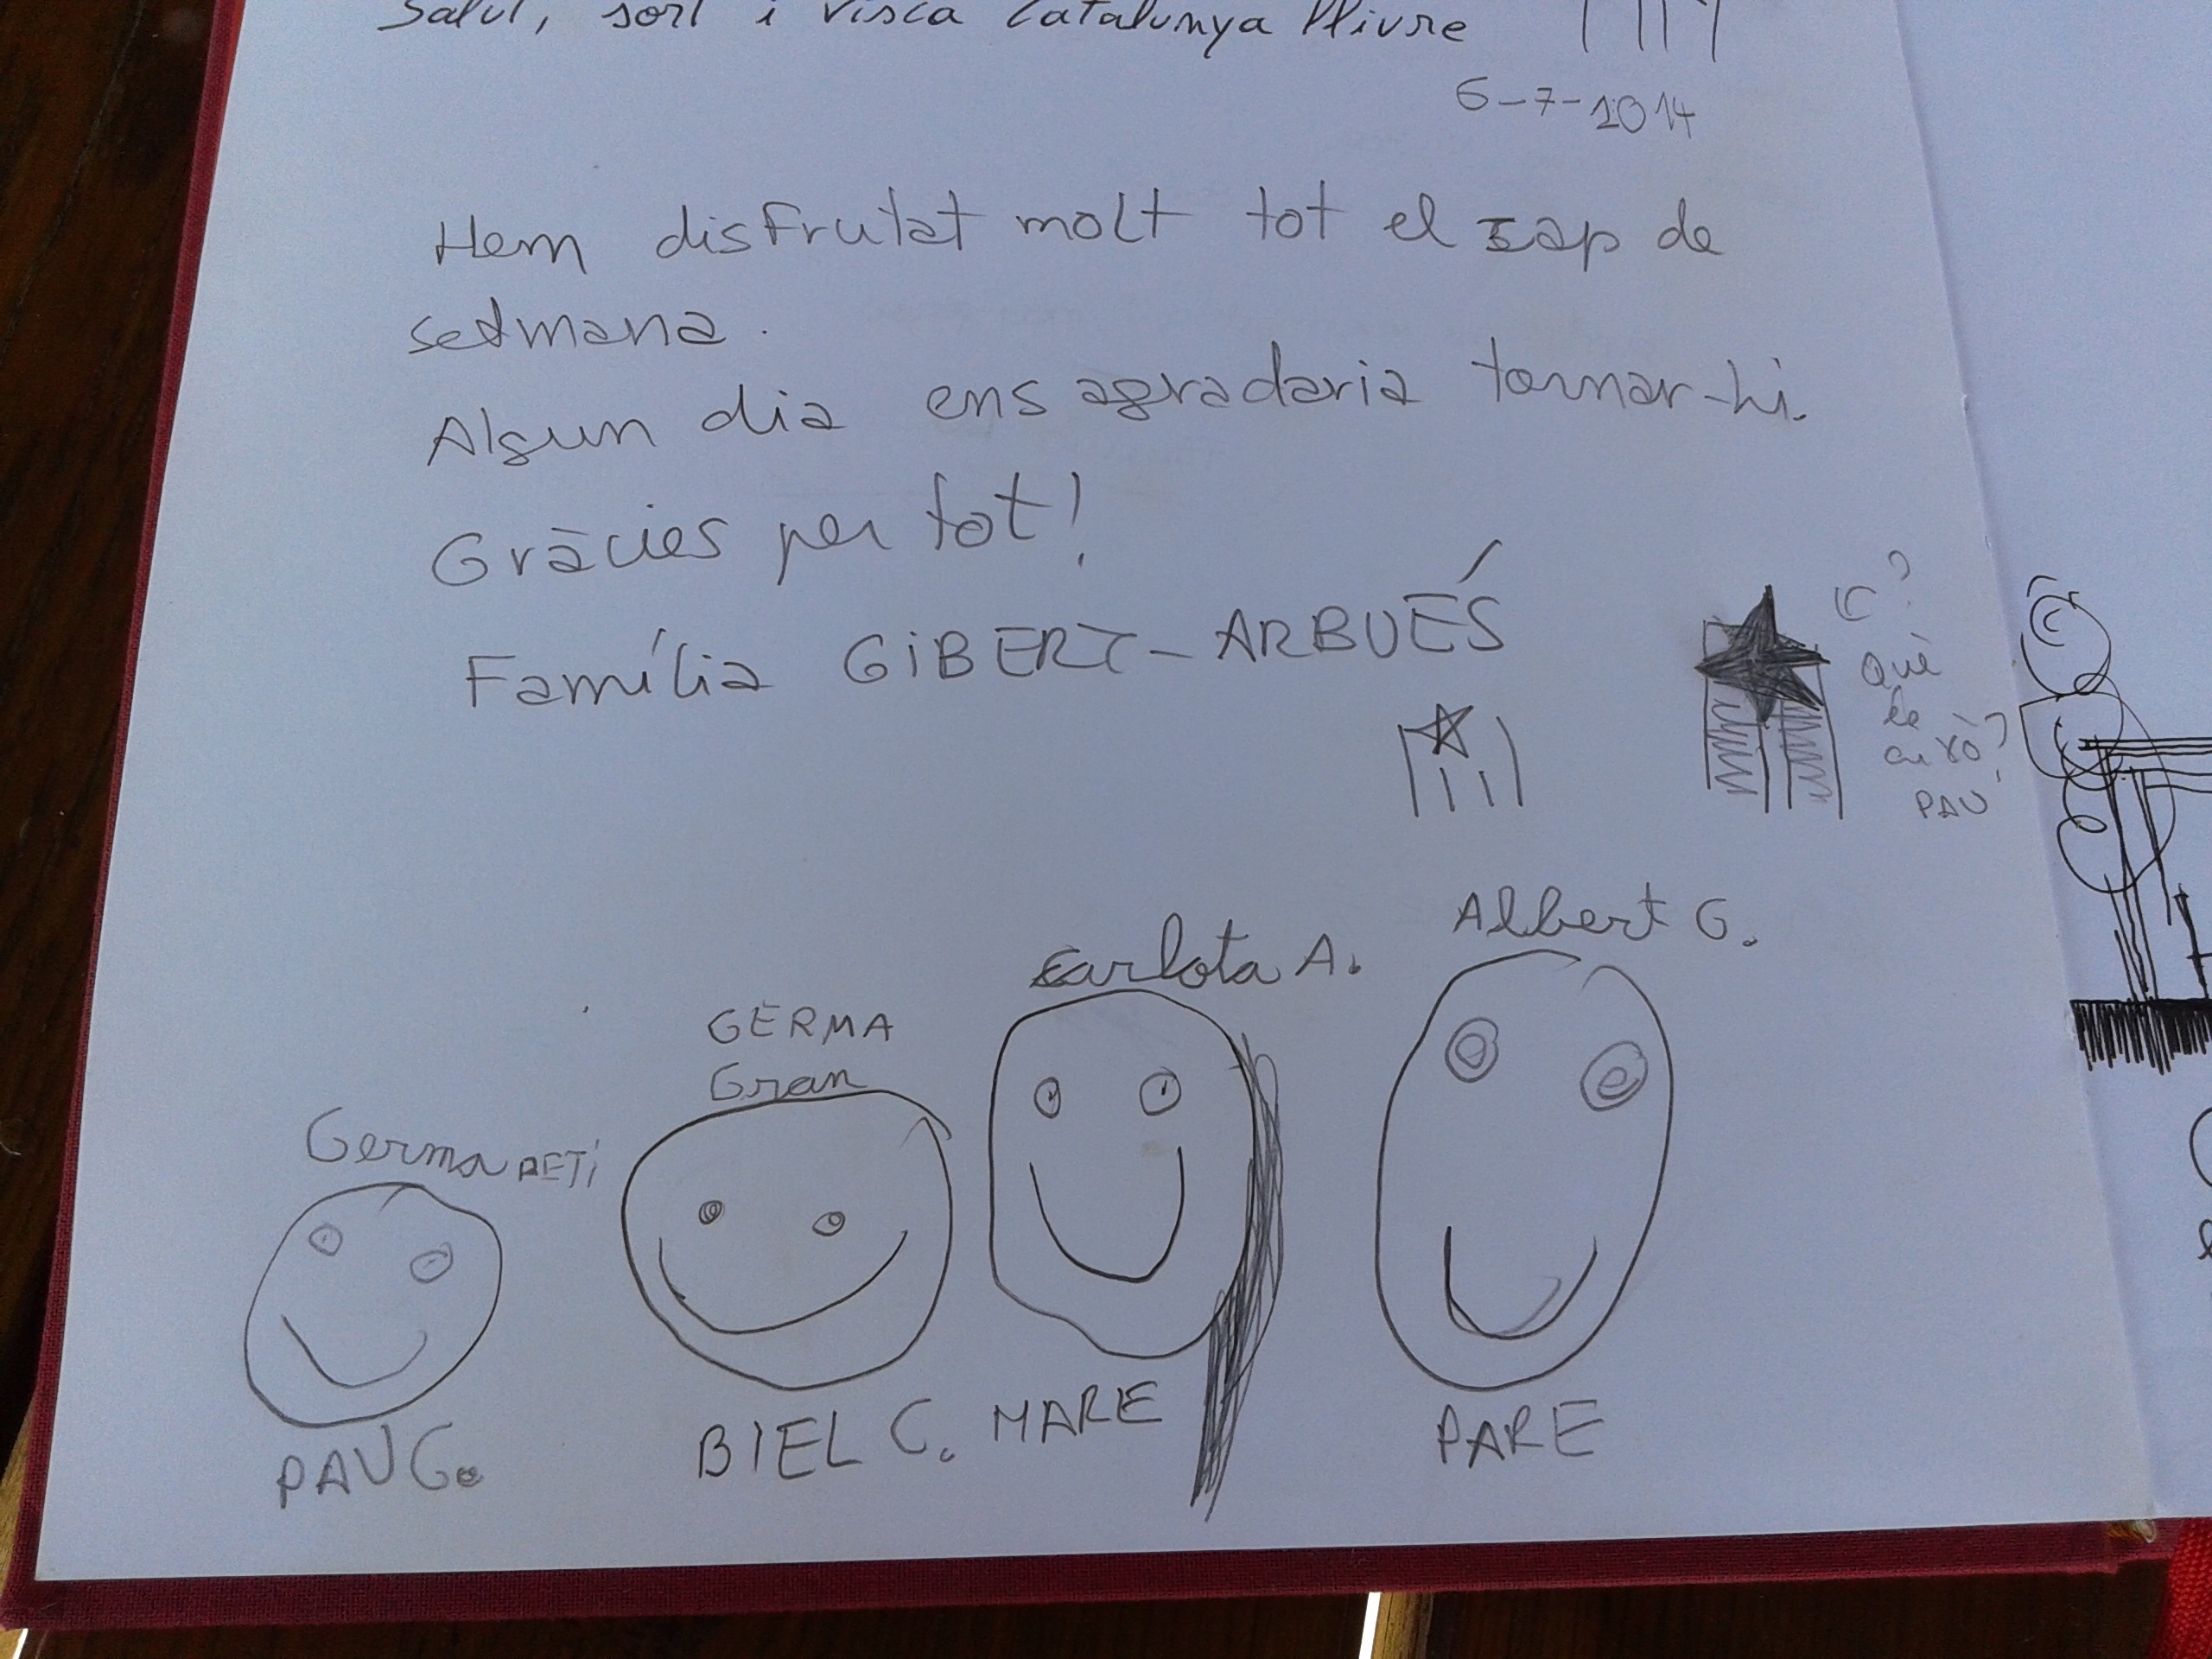 Salut, sort i visca Catalunya lliure
6-7-2014
Hem disfrutat molt tot el cap de
setmana.
Algun dia ens agradaria tornar-hi.
Gràcies per tot!
Família GiBERT-ARBUÉS
Què
és
això?
PAU
Albert G.
Carlota A.
GERMA
Gran
Germa PETi
PAU G.
BIEL C.
MARE
PARE